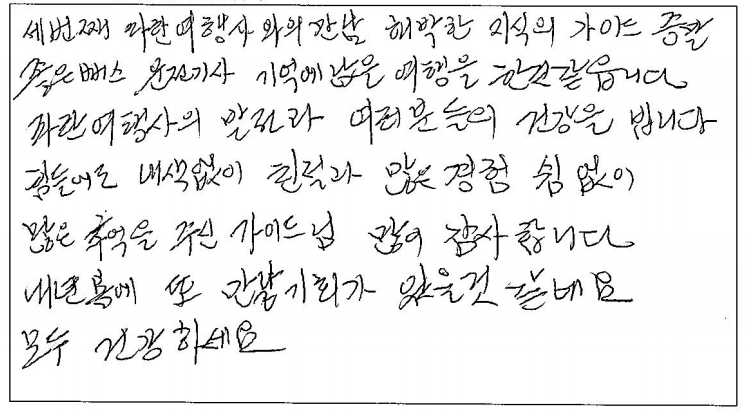 세번째 파란여행사 와의 만남 해박한 지식의 가이드
좋은뻐스 운전기사 기억에남을 여행을 한것같읍니다
파란여행사의 발전과 여러분들의 건강을 빕니다
힘들어도 내색없이 친절과 많은 경험 쉼 없이
많은 추억을 주신 가이드님 많이 감사 합니다
내년봄에 또 만날기회가 있을것 같네요
모두 건강하세요